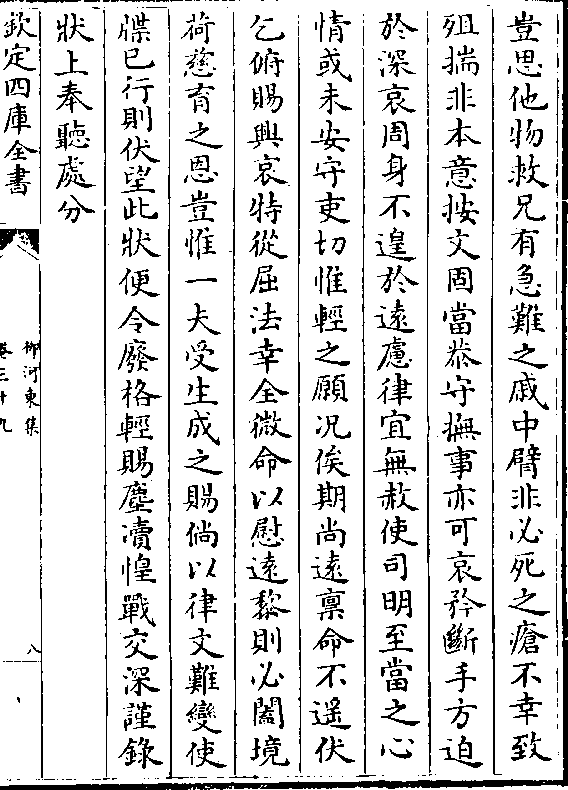 豈思他物救兄有急難之戚中臂非必死之瘡不幸致
殂揣非本意按文固當恭守撫事亦可哀矜斷手方迫
於深哀周身不遑於遠慮律宜無赦使司明至當之心
情或未安守吏切惟輕之願况俟期尚遠禀命不遥伏
乞俯賜興哀特從屈法幸全微命以慰遠黎則必闔境
荷慈育之恩豈惟一夫受生成之賜倘以律文難變使
牒已行則伏望此狀便令廢格輕賜塵瀆惶戰交深謹錄
狀上奉聽處分
欽定四庫全書
柳河東集
卷三十九
八